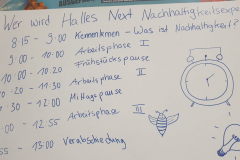 Wer wird Halles Next Nachhaltigkeitsexpe
8:15 - 9:00 Kennenlernen - Was ist Nachhaltigkeit?
9:00 - 10:00 Arbeitsphase I
10:00 - 10:20 Frühstückspause
10:20 - 11:30 Arbeitsphase II
11:30 - 12:00 Mittagspause
00 - 12:55 Arbeitsphase III
55 - 13:00 Verabschiedung